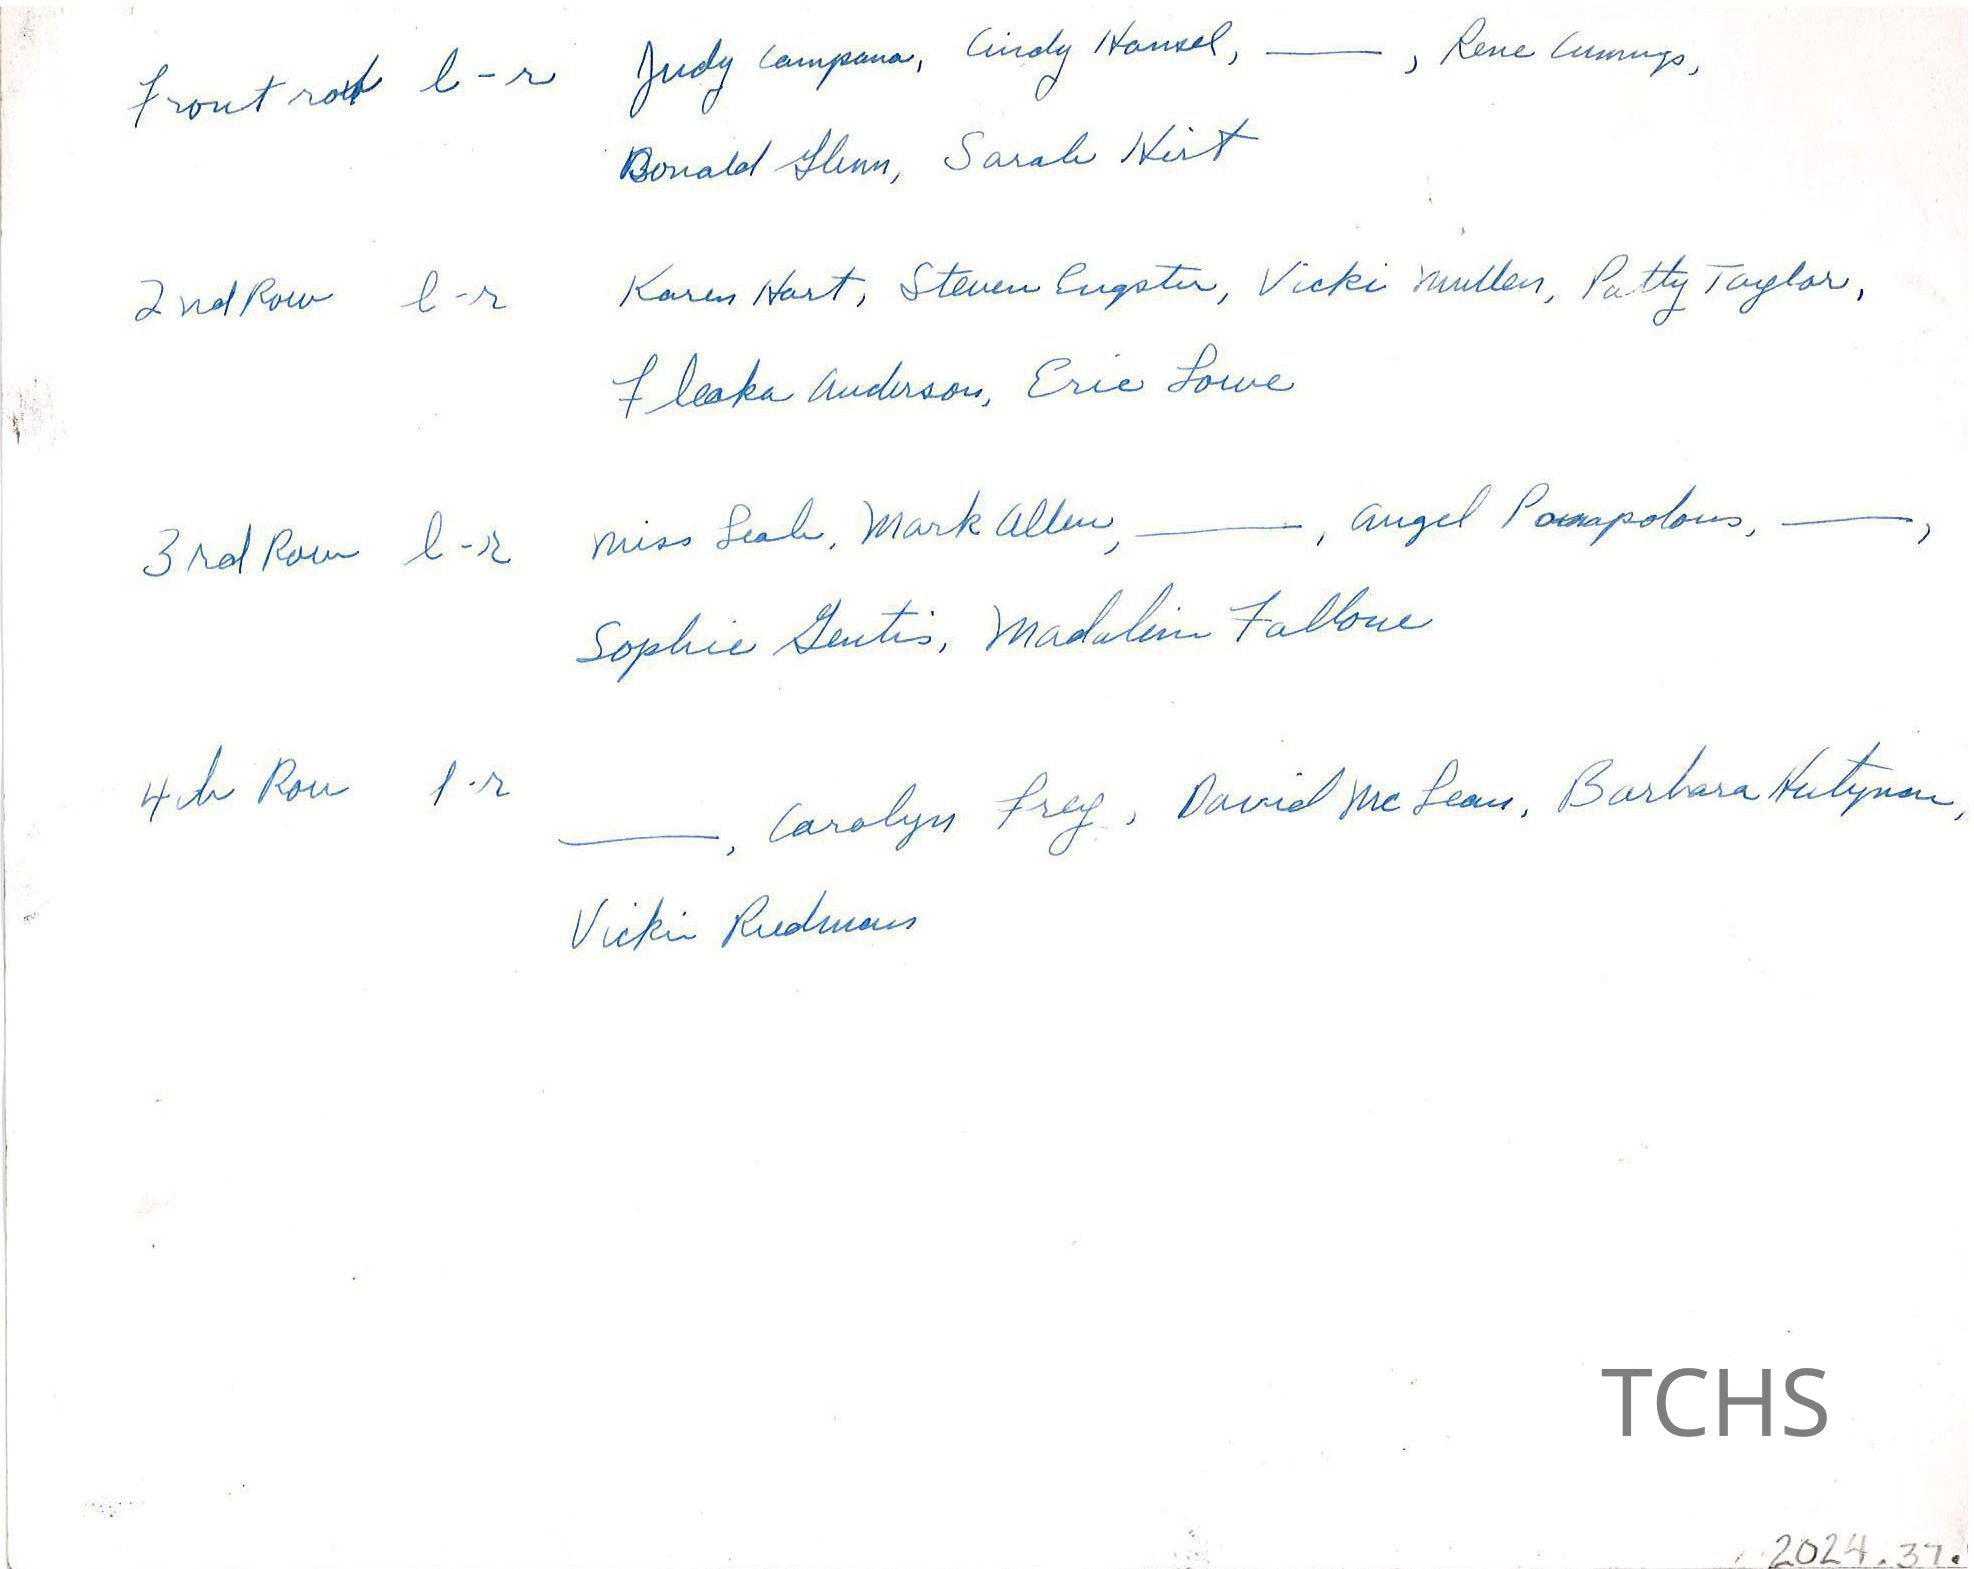 Front row l-r Judy Campana, Cindy Hansel, ——, Rene Cummings,
Donald Glenn, Sarah Hirt
2nd Row l-r Karen Hart, Steven Engster, Vicki Mullen, Patty Taylor,
Fleaka Anderson, Eric Lowe
3rd Row l-r Miss Leah, Mark Allen, ——, Angel Pomapolous, ——,
Sophie Gentis, Madalein Fallone
4th Row l-r
——, Carolyn Frey, David McLean, Barbara
Vicki Riedman
TCHS
2024.37.